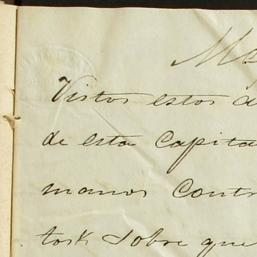 Vistos estos
de esta Capita
manos Contr
sobre que